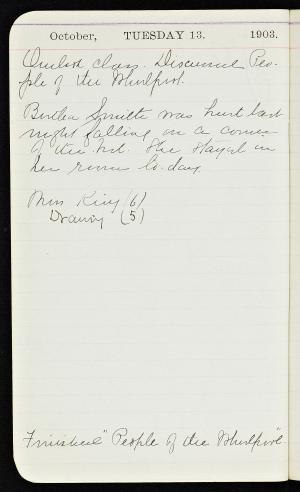 October, TUESDAY 13. 1903.
Outlook class. Discussed Peo-
ple of the Whirlpool.
Bertha Smith was hurt last
night falling on a corner
of the bed. She stayed in
her room to-day.
Miss King (6)
Drawing (5)
Finished "People of the Whirlpool"